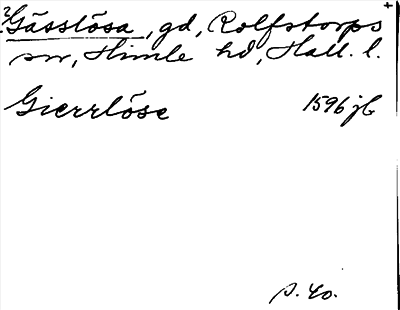 ? Gässlösa, gd, Rolfstorps +
sn, Himle hd, Hall. l.
Gierrlöse 1596 jb
s. 40.